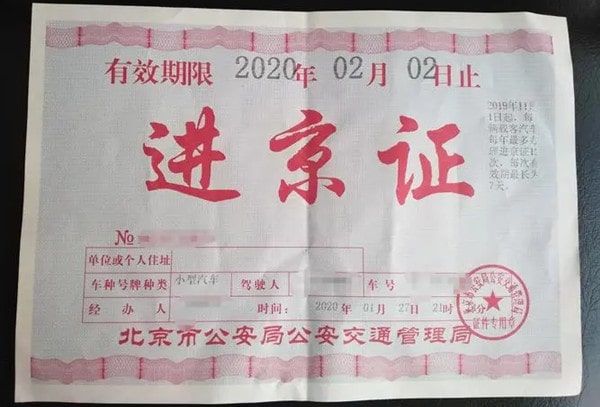 有效期限 2020年 02月 02日止
进京证
2019年11月
1日起,每
辆载客汽车
每年最多办
理进京证12
次,每次有
效期最长为
7天。
No
单位或个人住址
车种号牌种类 小型汽车 驾驶人 车号
经办人 时间: 2020 01 27 21时 分
北京市公安局公安交通管理局
证件专用章